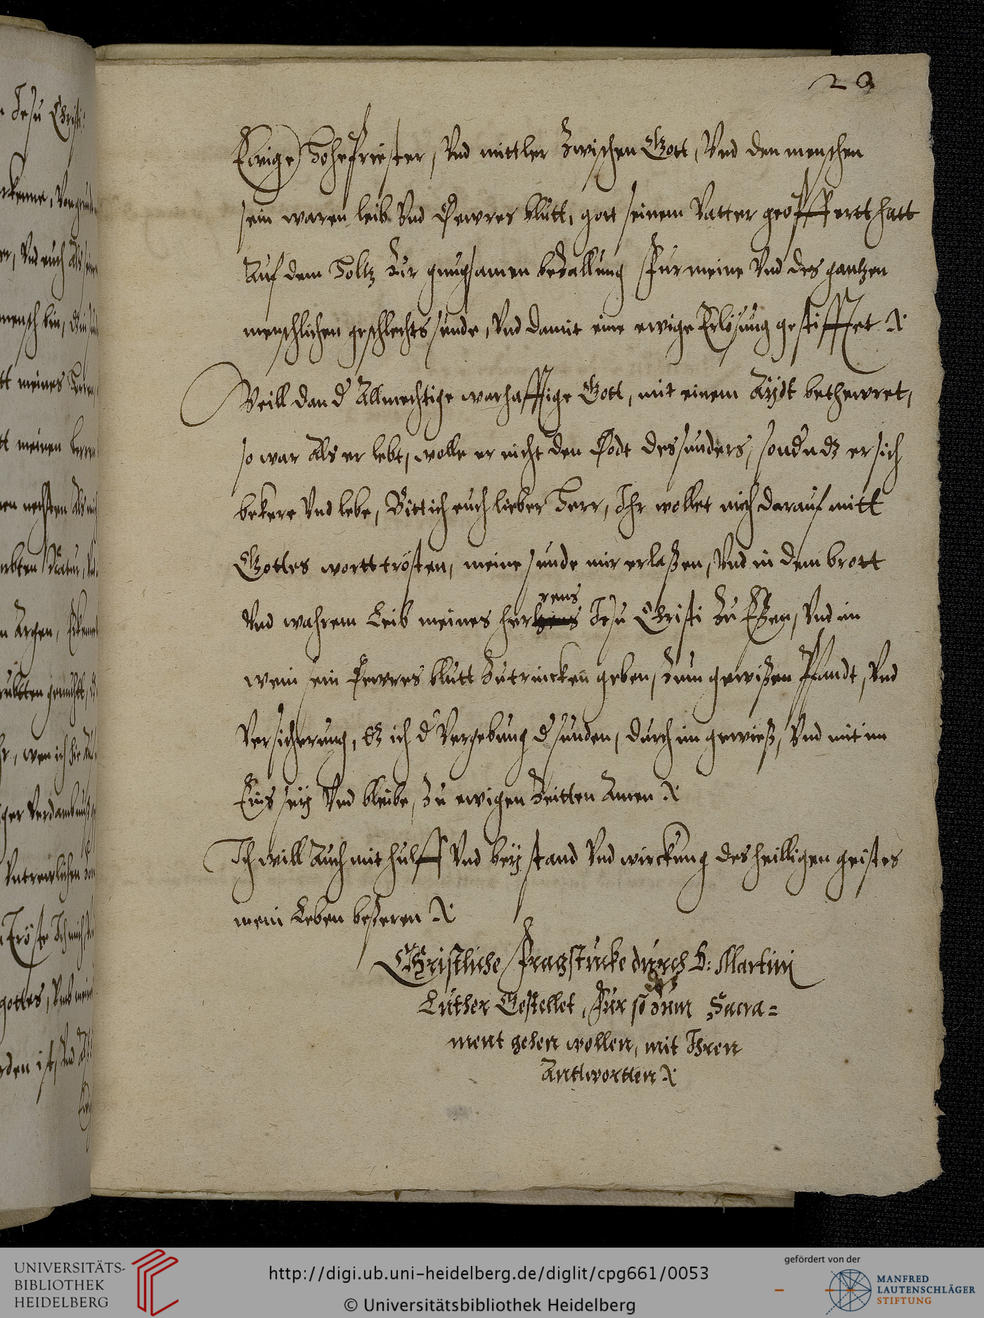 20
Ewige Hohepriester, Vnd mittler Zwischen Gott, Vnd den menschen
sein waren leib Vnd Tewres blutt, gott seinem Vatter geopffertt hatt
Auf dem Holtz Zur gnugsamen bezallung Fur meine Vnd des gantzen
menschlichen geschlechts sunde, Vnd damit eine ewige Erlösung gestifftet
Weill dan d Allmechtige warhafftige Gott, mit einem Aydt bethewret,
so war Als er lebt, wolle er nicht den Todt des sunders, sond n dz er sich
bekere Vnd lebe, Bitt ich euch lieber Herr, Ihr wollet mich darauf mitt
Gottes wortt trösten, meine sunde mir erlaßen, Vnd in dem brott
Vnd wahrem Leib meines herrens Jesu Christi Zu Eßen, Vnd im
wein sein Tewres blutt Zu trincken geben, Zum gewißen Pfandt, Vnd
Versicherung, dz ich d Vergebung d sunden, durch in gewieß, Vnd mit im
Eins sey Vnd bleibe, Zu ewigen Zeitten Amen
Ich will Auch mit hulff Vnd beystand Vnd wirckung des heilligen geistes
mein Leben beßeren
Christliche Fragstucke durch D: Martini
Luther Gestellet, Fur so Zum Sacra=
ment gehen wollen, mit Ihren
Antwortten
UNIVERSITÄTS-
BIBLIOTHEK
HEIDELBERG
http://digi.ub.uni-heidelberg.de/diglit/cpg661/0053
© Universitätsbibliothek Heidelberg
gefördert von der
MANFRED
LAUTENSCHLÄGER
STIFTUNG